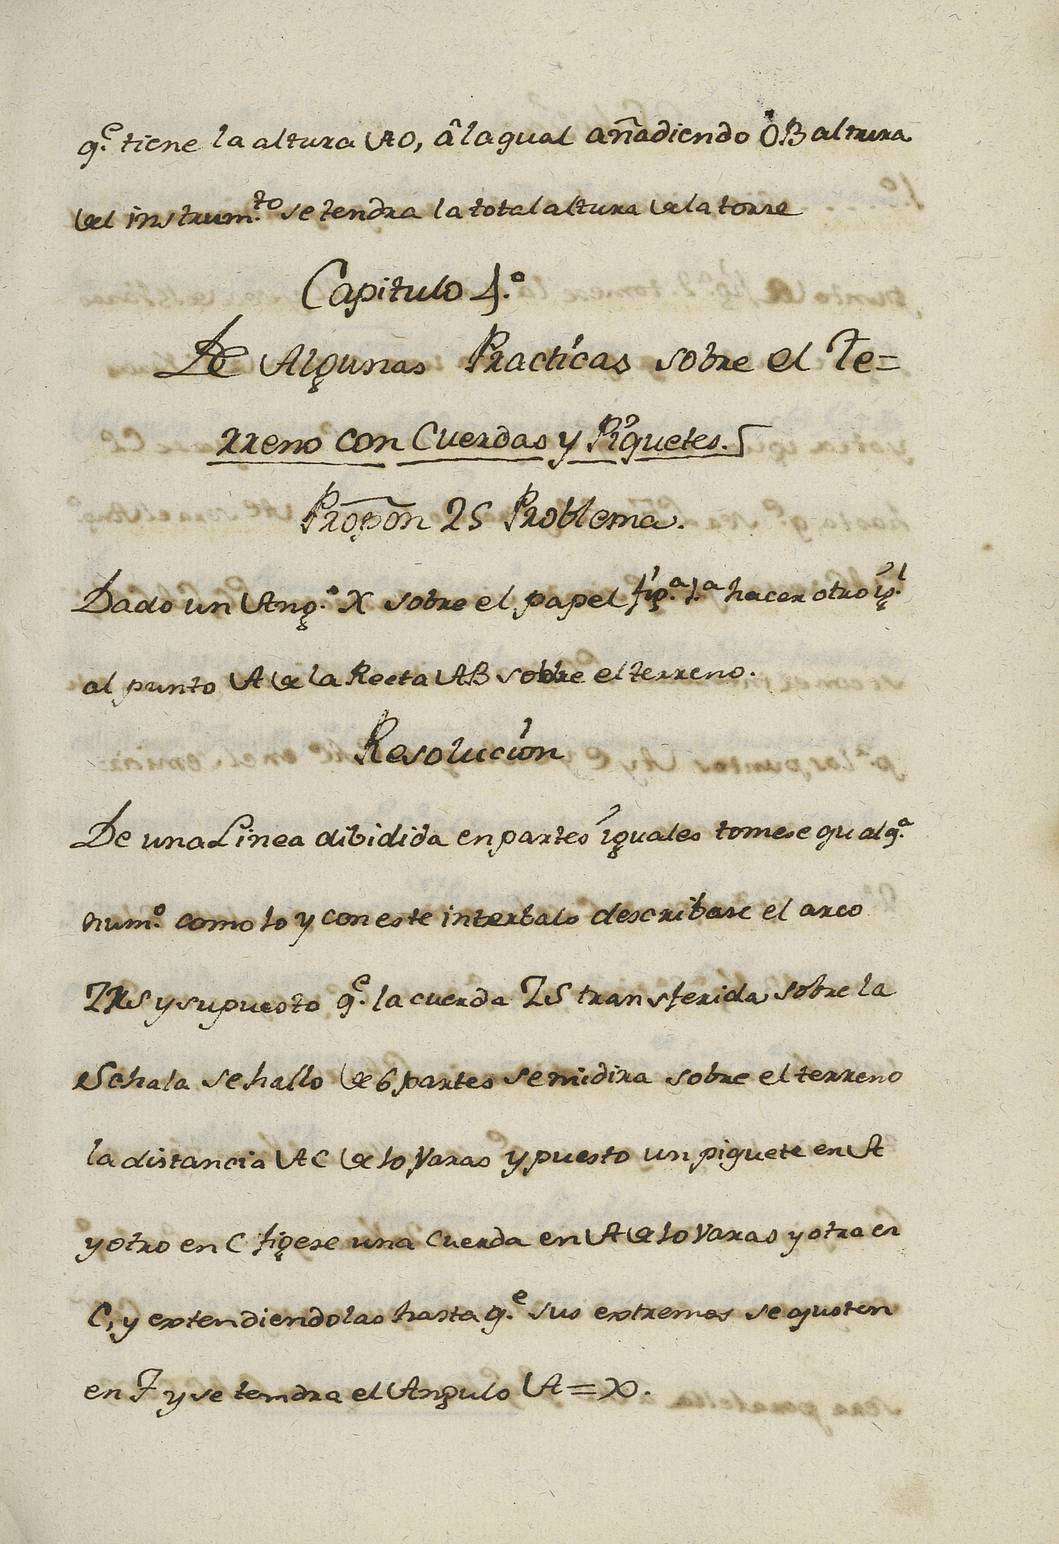 q.e tiene la altura AO, â la qual añadiendo OB altura
del instrum.to se tendra la total altura de la torre
Capitulo 4.º
De Algunas Practicas sobre el Te=
rreno con Cuerdas y Piquetes.
Propōn 25 Problema.
Dado un Ang.º X sobre el papel fig.a 1.a hacer otro ig.l
al punto A de la Recta AB sobre el terreno.
Resolución
De una Linea dibidida en partes iguales tomese qualq.a
num.º como 10 y con este interbalo describase el arco
ZRS y supuesto q.e la cuerda ZS transferida sobre la
Schala se hallo de 6 partes se midira sobre el terreno
la distancia AC de 10 Varas y puesto un piquete en A
y otro en C figese una Cuerda en A de 10 Varas y otra en
C, y extendiendolas hasta q.e sus extremos se ajusten
en F y se tendra el Angulo A = X.